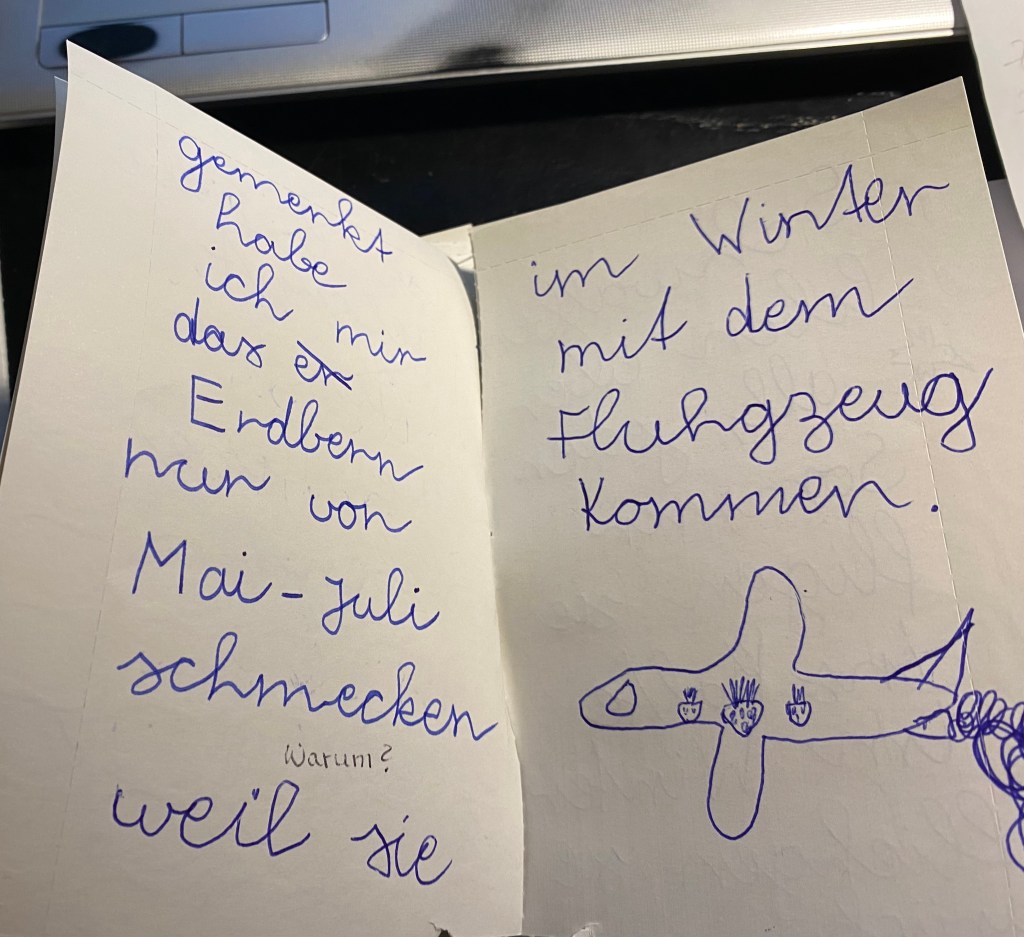 gemerkt
habe
ich mir
das er
Erdbern
nur von
Mai-Juli
schmecken
Warum?
weil sie
im Winter
mit dem
Fluhgzeug
kommen.